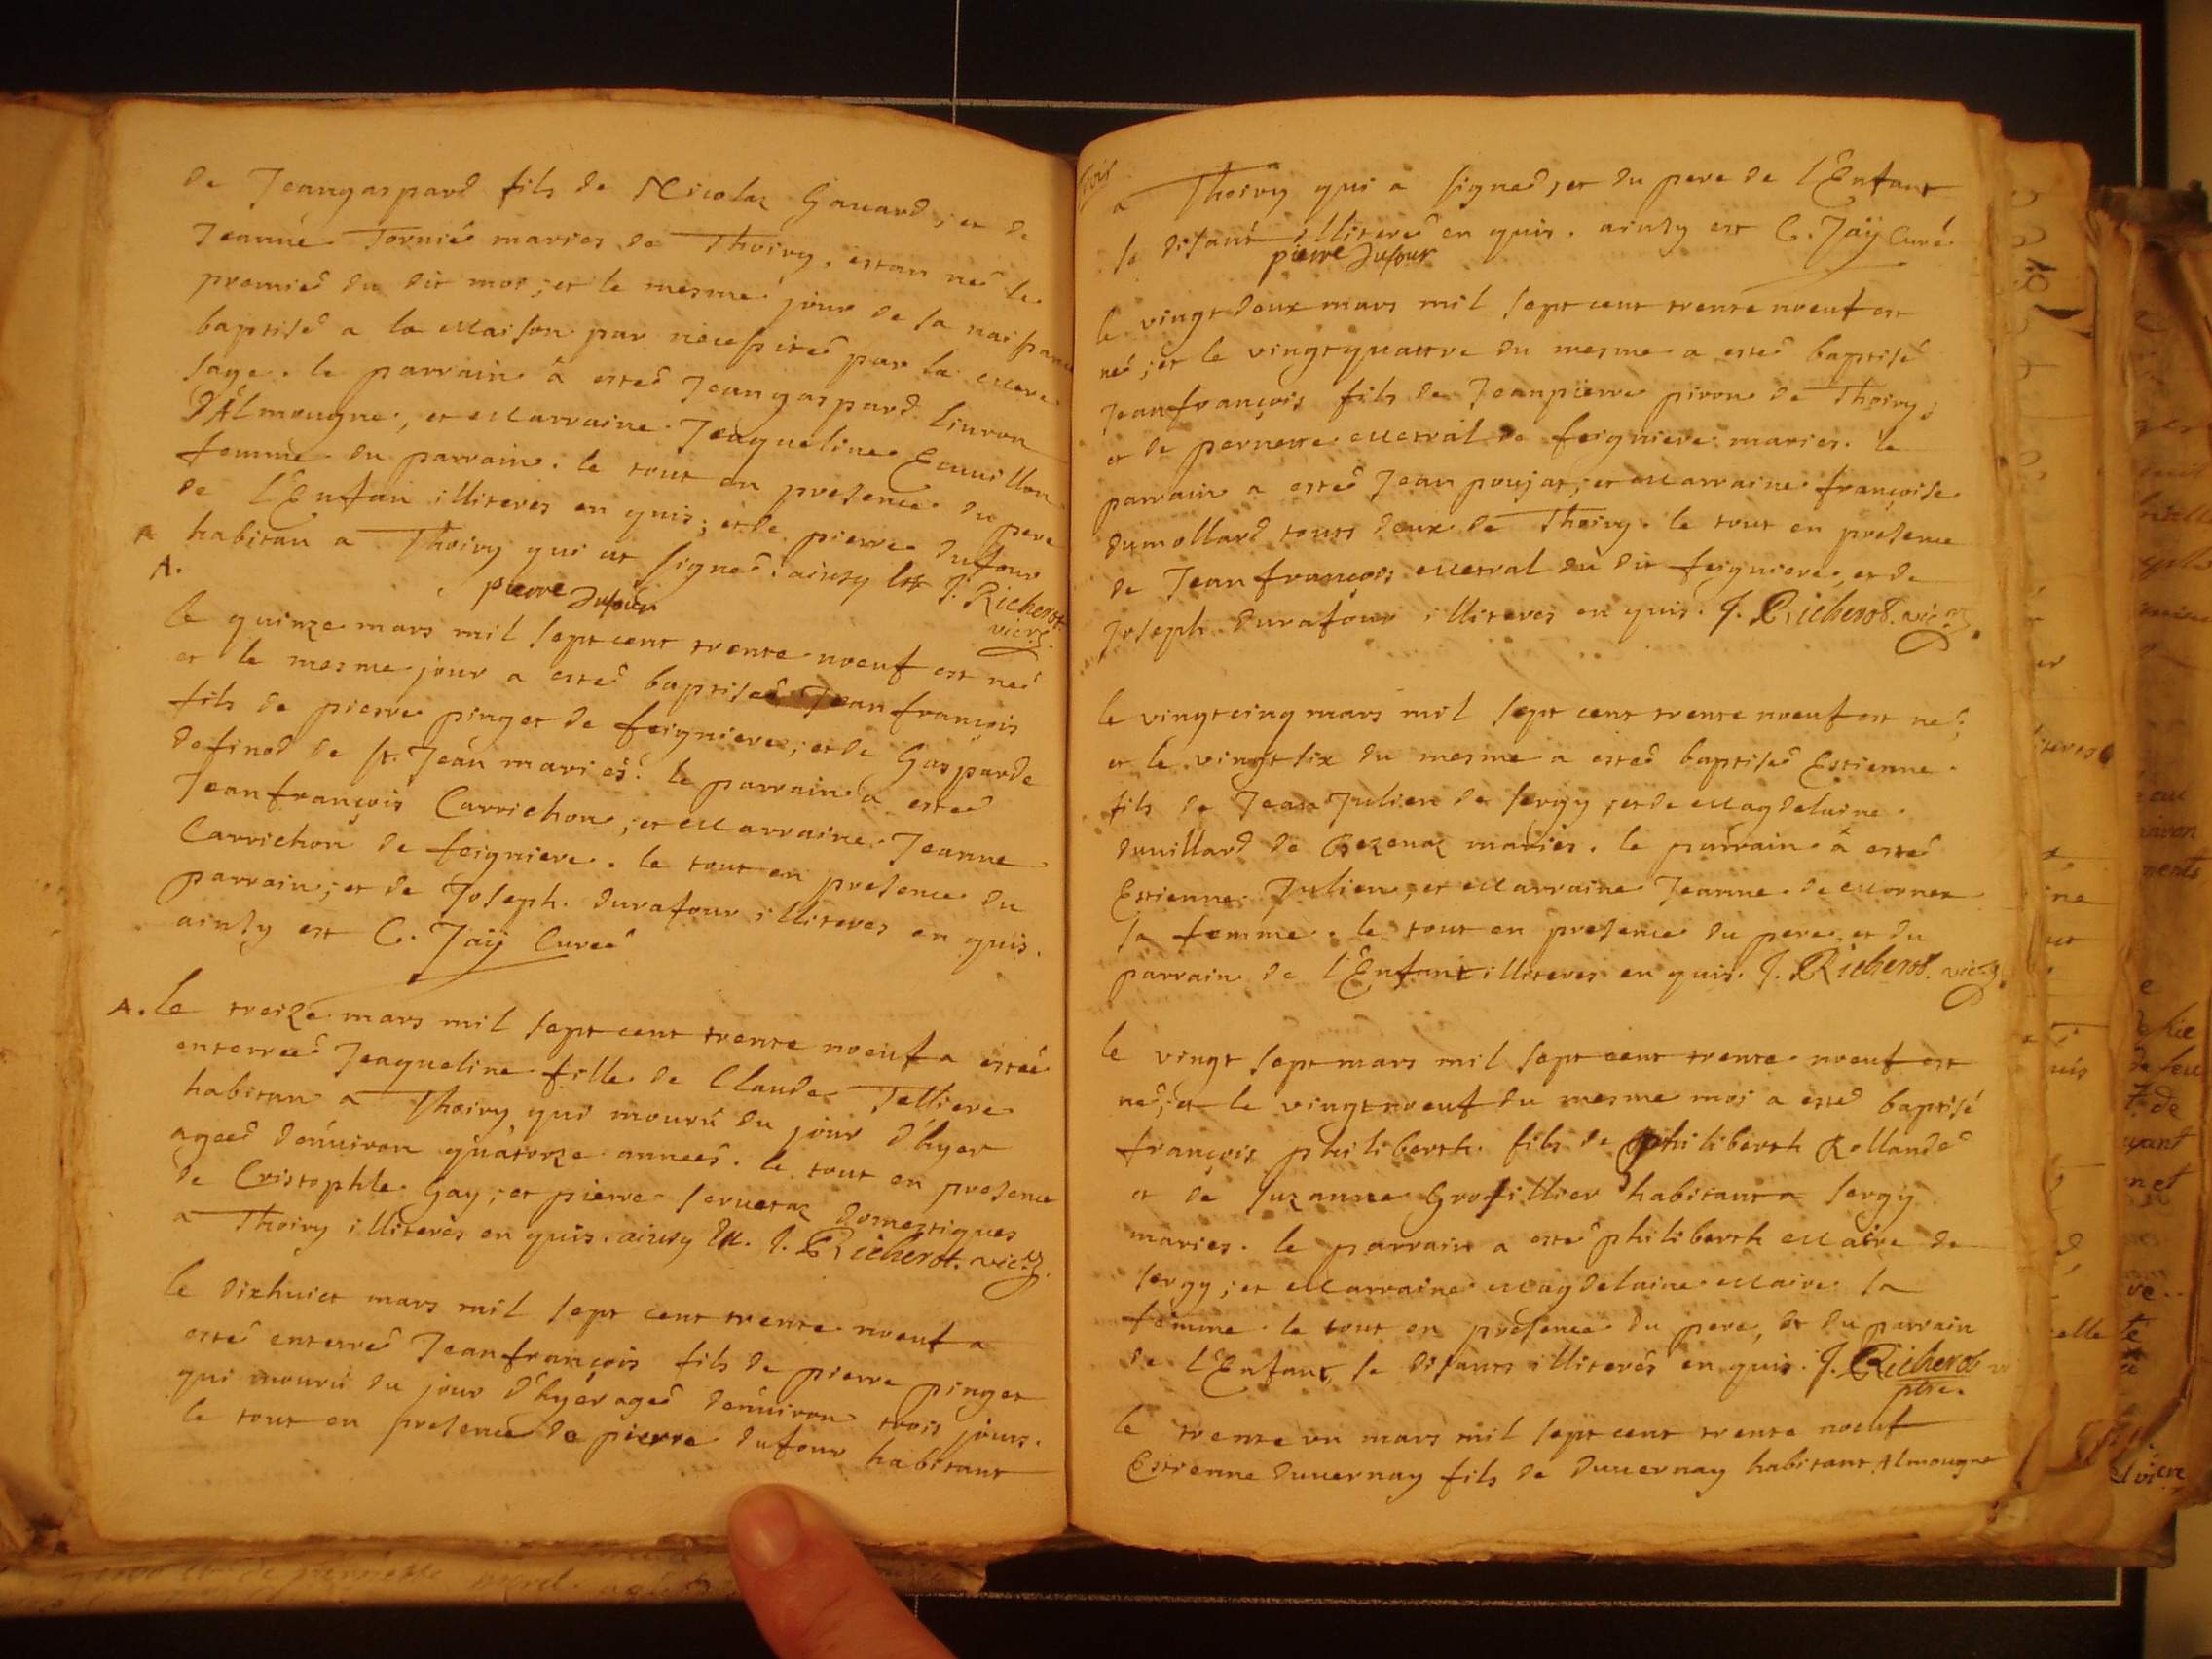 de Jeangaspard fils de Nicolaz Gavard; et de
Jeanne Tornié maries de Thoiry. estan né le
premier du dit moi; et le mesme jour de sa naissance
baptisé a la Maison par nécessité par la Mere
sage. le parrain â esté Jeangaspard Livron
D'Almougne, et Marraine Jeaqueline Ecuvillon
femme du parrain. le tout en presence du pere
de l'Enfan illiteres en quis; et de pierre Dufour
habitan a Thoiry qui at signé. ainsy est J. Richerot
vic.
pierre Dufour
A.
le quinze mars mil sept cent trente noeuf est né
et le mesme jour a esté baptisé Jeanfrançois
fils de pierre pinget de feigniere; et de Gasparde
definod de st. Jean mariés. le parrain a esté
Jeanfrançois Carrichon; et Marraine Jeanne
Carrichon de feigniere. le tout en presence du
parrain; et de Joseph Durafour illiteres en quis.
ainsy est C. Jaÿ Cureé
A. le treize mars mil sept cent trente noeuf a estée
enterrée Jeaqueline fille de Claude Telliere
habitan a Thoiry qui mourû du jour d'hyer
ageé d'enuiron quatorze années. le tout en presence
de Cristophle Gay; et pierre seruetaz domestiques
a Thoiry illiterés en quis. ainsy est. J. Richerot. vic.
le dixhuict mars mil sept cent trente noeuf a
esté enterré Jeanfrançois fils de pierre pinget
qui mourû du jour d'hyér agé d'enuiron trois jours.
le tout en presence de pierre dufour habitant
a Thoiry qui a signé, et du pere de l'Enfant
se disant illiteré en quis. ainsy est C. Jaÿ Curé
pierre Dufour
le vingt deux mars mil sept cent trente noeuf est
né; et le vingtquattre du mesme a esté baptisé
Jeanfrançois fils de Jeanpierre piron de Thoiry;
et de pernette Mestral de feigniere maries. le
parrain a esté Jean poujat; et Marraine françoise
dumollard touts deux de Thoiry. le tout en présence
de Jeanfrançois Mestral du dit feigniere, et de
Joseph durafour illiteres en quis. J. Richerot. vic.
le vingtcinq mars mil sept cent trente noeuf est né;
et le vingtsix du mesme a esté baptisé Estienne
fils de Jean Julien de sergy; et de Magdelaine
duuillard de Bezenaz maries. le parrain â esté
Estienne Julien, et Marraine Jeanne de Mornex
sa femme. le tout en presence du pere, et du
parrain de l'Enfant illiteres en quis. J. Richerot. vic.
le vingt sept mars mil sept cent trente noeuf est
né; et le vingtnoeuf du mesme moi a esté baptisé
françois philiberth fils de philiberth Rollandé
et de suzanne Grosillier habitant a sergy
maries. le parrain a esté philiberth Maire de
sergy; et Marraine Magdelaine Maire sa
femme. le tout en présence du pere, et du parrain
de l'Enfant, se disants illiterés en quis. J. Richerot
ptre.
le trente vn mars mil sept cent trente noeuf
Estienne duuernay fils de duuernay habitant Almougne